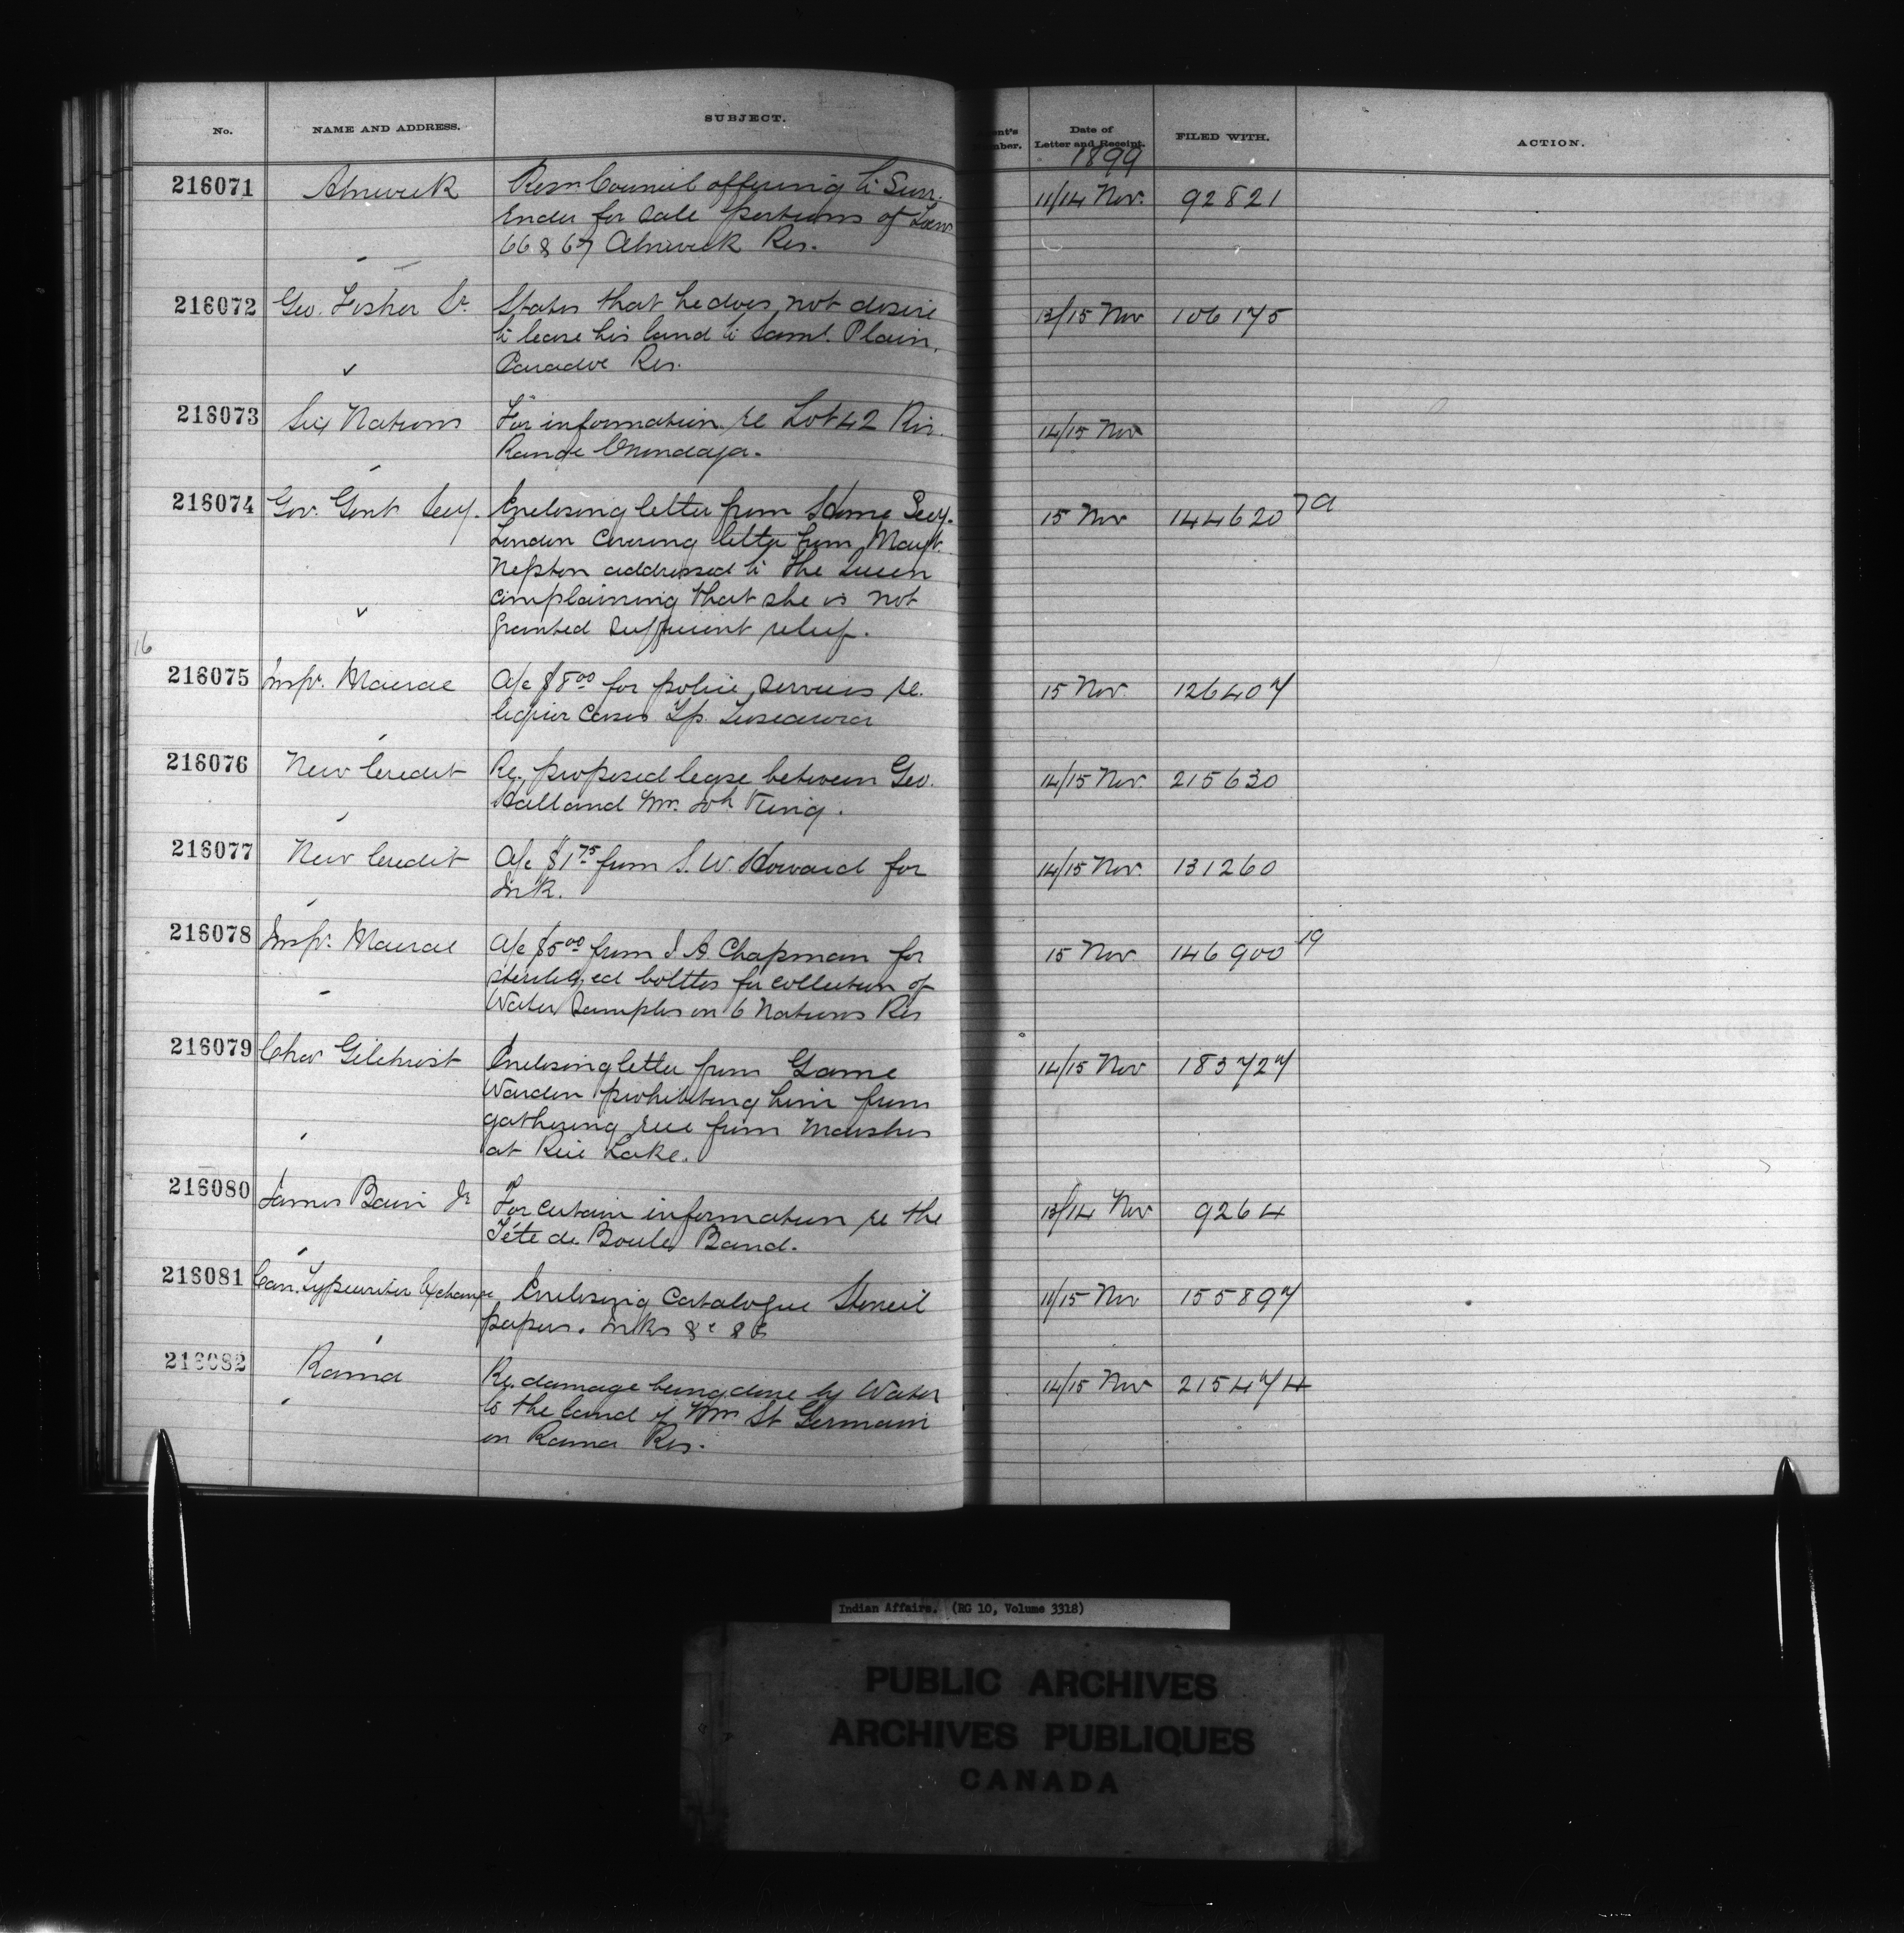 No. NAME AND ADDRESS. SUBJECT. Date of Letter and Receipt. FILED WITH. ACTION.
1899
216071 Alnwick Resn. Council offering to Surr- 11/14 Nov. 92821
ender for sale portions of
66 & 67 Alnwick Res.
216072 Geo. Fisher Sr. States that he does not desire 13/15 Nov 106175
to lease his land to Saml. Plain,
Caradoc Res.
216073 Six Nations For information re Lot 42 Riv. 14/15 Nov
Range Onondaga.
216074 Gov. Genl Secy. Enclosing letter from Home Secy. 15 Nov 144620 7A
London covering letter from Margt.
Nepton addressed to the Queen
complaining that she is not
granted sufficient relief.
16
216075 Inspr. Macrae A/c $8.00 for police services re. 15 Nov. 126407
liquor cases Tp. Tuscarora
216076 New Credit Re. proposed lease between Geo. 14/15 Nov. 215630
Hall and Mr. Joh King.
216077 New Credit A/c $1.75 from S. W. Howard for 14/15 Nov. 131260
Ink.
216078 Inspr. Macrae A/c $5.00 from J. A. Chapman for 15 Nov. 146900 19
sterilized bottles for collection of
Water Samples on 6 Nations Res
216079 Chas Gilchrist Enclosing letter from Game 14/15 Nov 183727
Warden prohibiting him from
gathering rice from Marshes
at Rice Lake.
216080 James Bain Jr For certain information re the 13/14 Nov 9264
Téte de Boule Band.
216081 Can. Typewriter Exchange Enclosing Catalogue Stencil 11/15 Nov 155897
papers. Inks &c &c
216082 Rama Re. damage being done by Water 14/15 Nov 215474
to the land of Wm St Germain
on Rama Res.
Indian Affairs. (RG 10, Volume 3318)
PUBLIC ARCHIVES
ARCHIVES PUBLIQUES
CANADA